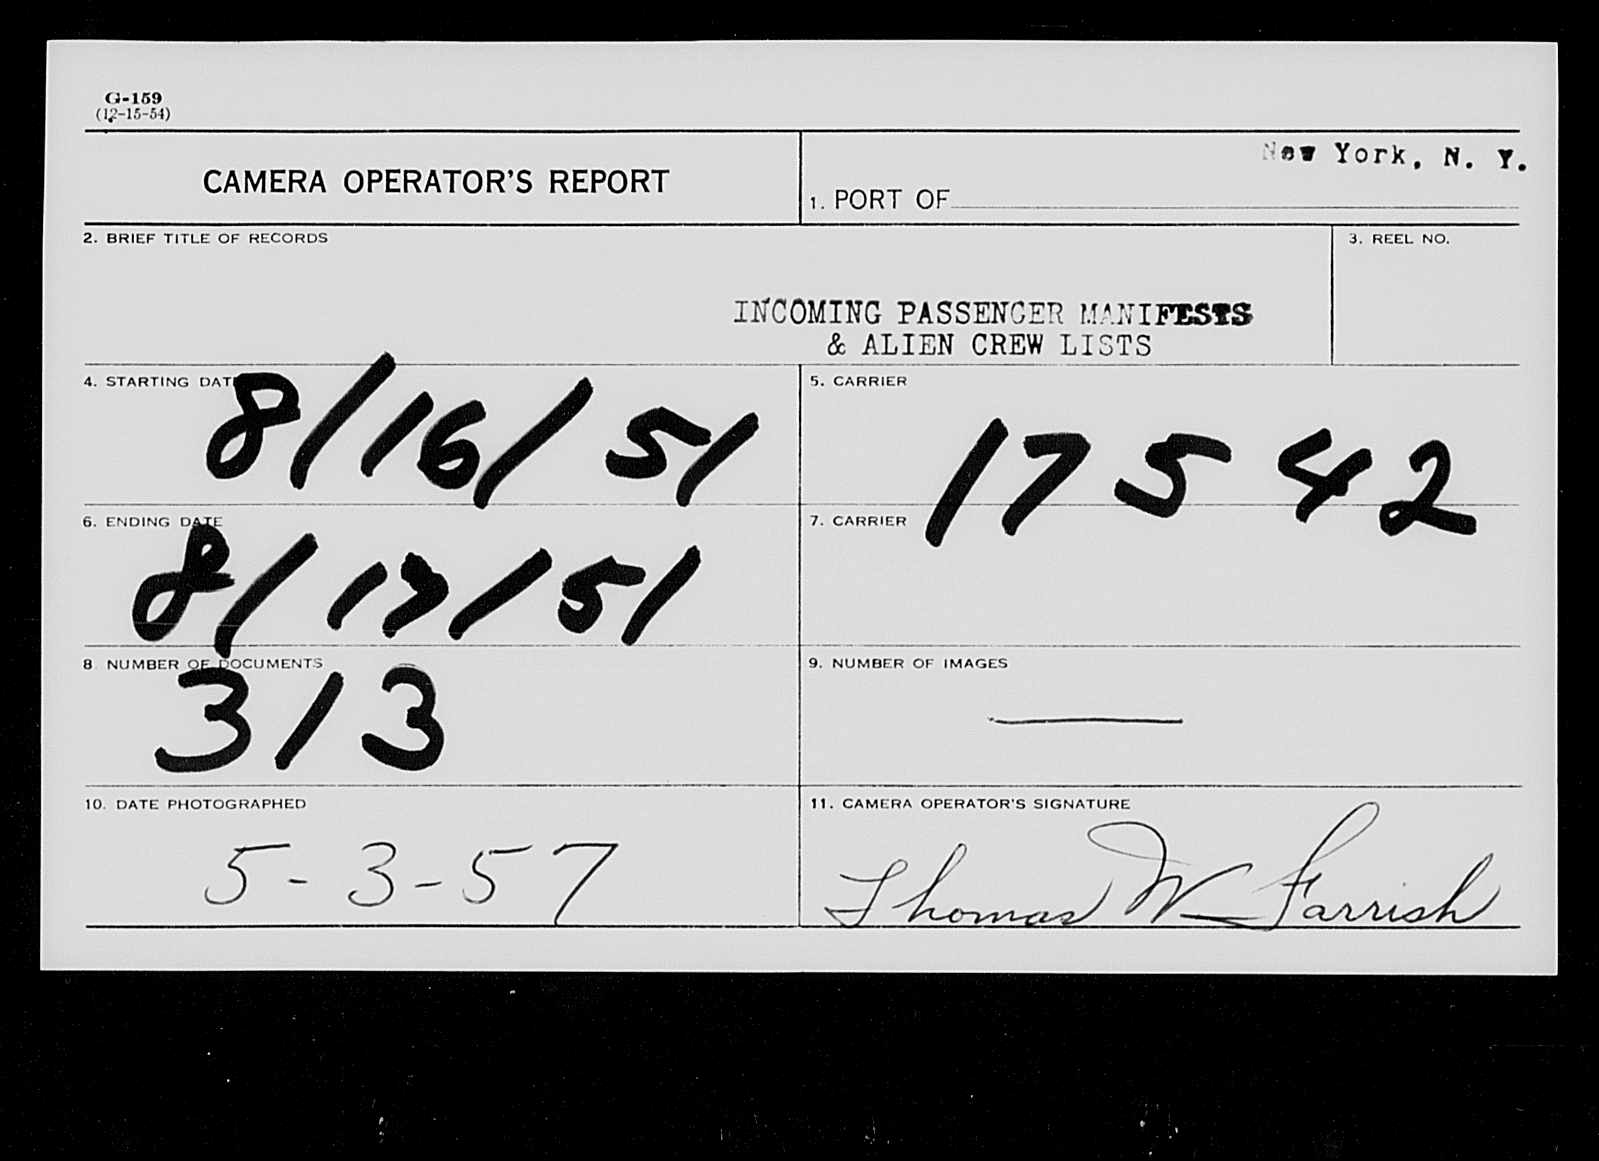 G-159
(12-15-54)
CAMERA OPERATOR'S REPORT
New York, N. Y.
1. PORT OF
2. BRIEF TITLE OF RECORDS
3. REEL NO.
INCOMING PASSENGER MANIFESTS
& ALIEN CREW LISTS
4. STARTING DATE
8/16/51
5. CARRIER
17542
6. ENDING DATE
8/17/51
7. CARRIER
8 NUMBER OF DOCUMENTS
313
9. NUMBER OF IMAGES
10. DATE PHOTOGRAPHED
5-3-57
11. CAMERA OPERATOR'S SIGNATURE
Thomas W Farrish